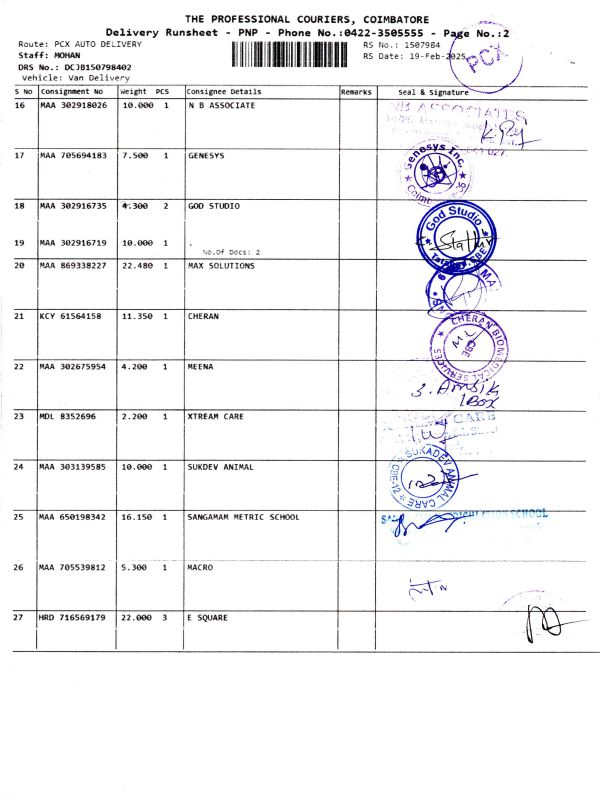 THE PROFESSIONAL COURIERS, COIMBATORE
Delivery Runsheet - PNP - Phone No.:0422-3505555 - Page No.:2
Route: PCX AUTO DELIVERY RS No.: 1507984
Staff: MOHAN RS Date: 19-Feb-2025
DRS No.: DCJB150798402
Vehicle: Van Delivery
PCX
S No Consignment No Weight PCS Consignee Details Remarks Seal & Signature
16 MAA 302918026 10.000 1 N B ASSOCIATE
NB ASSOCIATES
17 MAA 705694183 7.500 1 GENESYS
Genesys Inc.
18 MAA 302916735 4.300 2 GOD STUDIO
God Studio
19 MAA 302916719 10.000 1 .
No.Of Docs: 2
20 MAA 869338227 22.480 1 MAX SOLUTIONS
21 KCY 61564158 11.350 1 CHERAN
CHERAN BIOMEDICAL SERVICES
CBE
22 MAA 302675954 4.200 1 MEENA
1 Box
23 MDL 8352696 2.200 1 XTREAM CARE
CARE
24 MAA 303139585 10.000 1 SUKDEV ANIMAL
SUKADEV ANIMAL CARE
CBE-12
25 MAA 650198342 16.150 1 SANGAMAM METRIC SCHOOL
SCHOOL
26 MAA 705539812 5.300 1 MACRO
27 HRD 716569179 22.000 3 E SQUARE